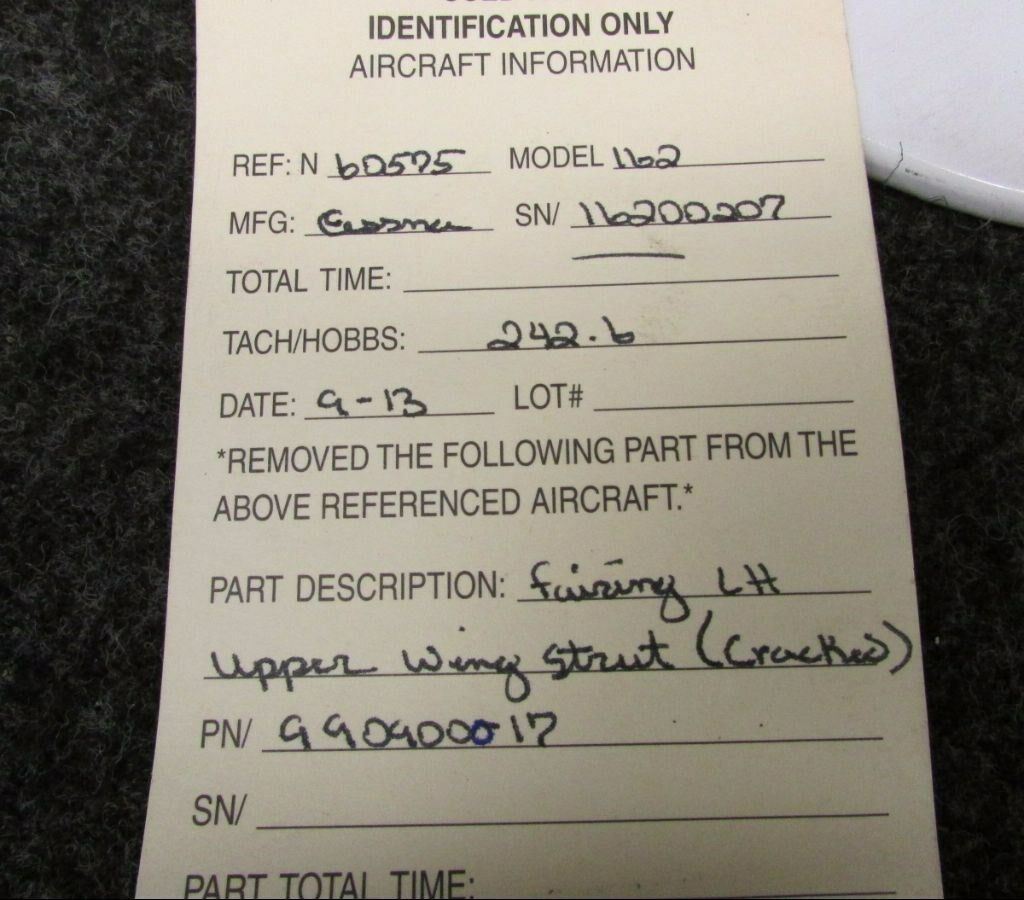 IDENTIFICATION ONLY
AIRCRAFT INFORMATION
REF: N 60575 MODEL 162
MFG: Cessna SN/ 16200207
TOTAL TIME:
TACH/HOBBS: 242.6
DATE: 9-13 LOT#
*REMOVED THE FOLLOWING PART FROM THE
ABOVE REFERENCED AIRCRAFT.*
PART DESCRIPTION: Fairing LH
Upper Wing Strut (Cracked)
PN/ 990900017
SN/
PART TOTAL TIME: